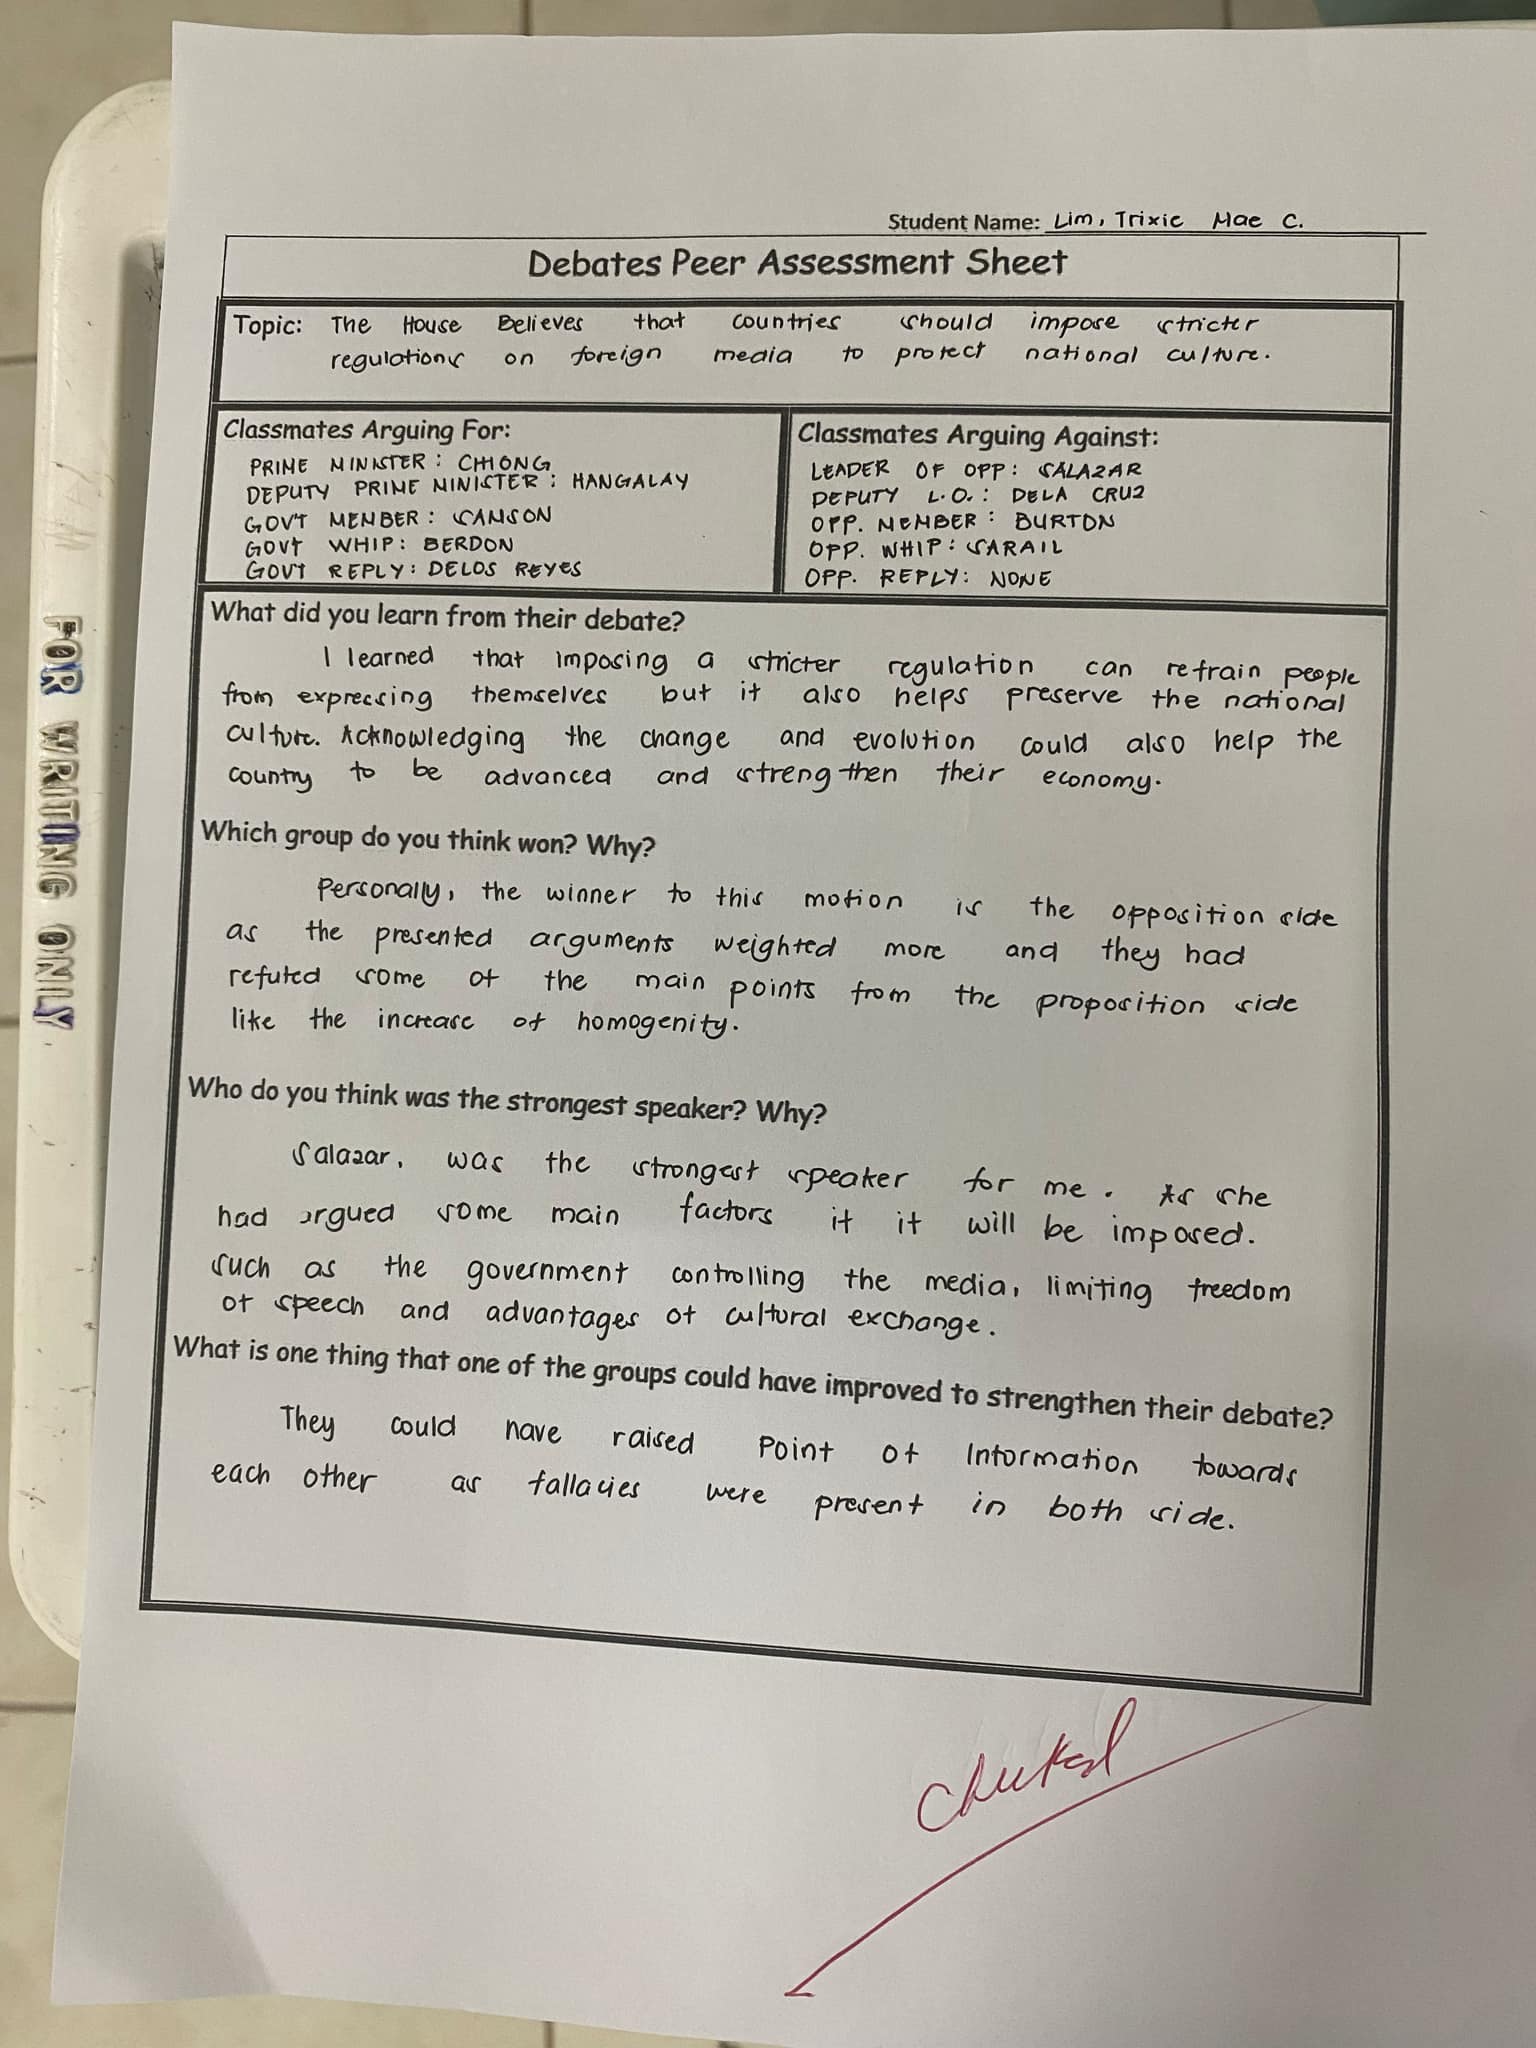 Student Name: Lim, Trixie Mae C.
Debates Peer Assessment Sheet
Topic: The House Believes that countries should impose stricter
regulations on foreign media to protect national culture.
Classmates Arguing For:
PRIME MINISTER: CHIONG
DEPUTY PRIME MINISTER: MANGALAY
GOV'T MEMBER: SAMSON
GOVT WHIP: BERDON
GOVT REPLY: DELOS REYES
Classmates Arguing Against:
LEADER OF OPP: SALAZAR
DEPUTY L.O.: DELA CRUZ
OPP. MEMBER: BURTON
OPP. WHIP: SARAIL
OPP. REPLY: NONE
What did you learn from their debate?
I learned that imposing a stricter regulation can refrain people
from expressing themselves but it also helps preserve the national
culture. Acknowledging the change and evolution could also help the
country to be advanced and strengthen their economy.
Which group do you think won? Why?
Personally, the winner to this motion is the opposition side
as the presented arguments weighted more and they had
refuted some of the main points from the proposition side
like the increase of homogenity.
Who do you think was the strongest speaker? Why?
Salazar, was the strongest speaker for me. As she
had argued some main factors if it will be imposed.
such as the government controlling the media, limiting freedom
of speech and advantages of cultural exchange.
What is one thing that one of the groups could have improved to strengthen their debate?
They could have raised Point of Information towards
each other as fallacies were present in both side.
checked
FOR WRITING ONLY